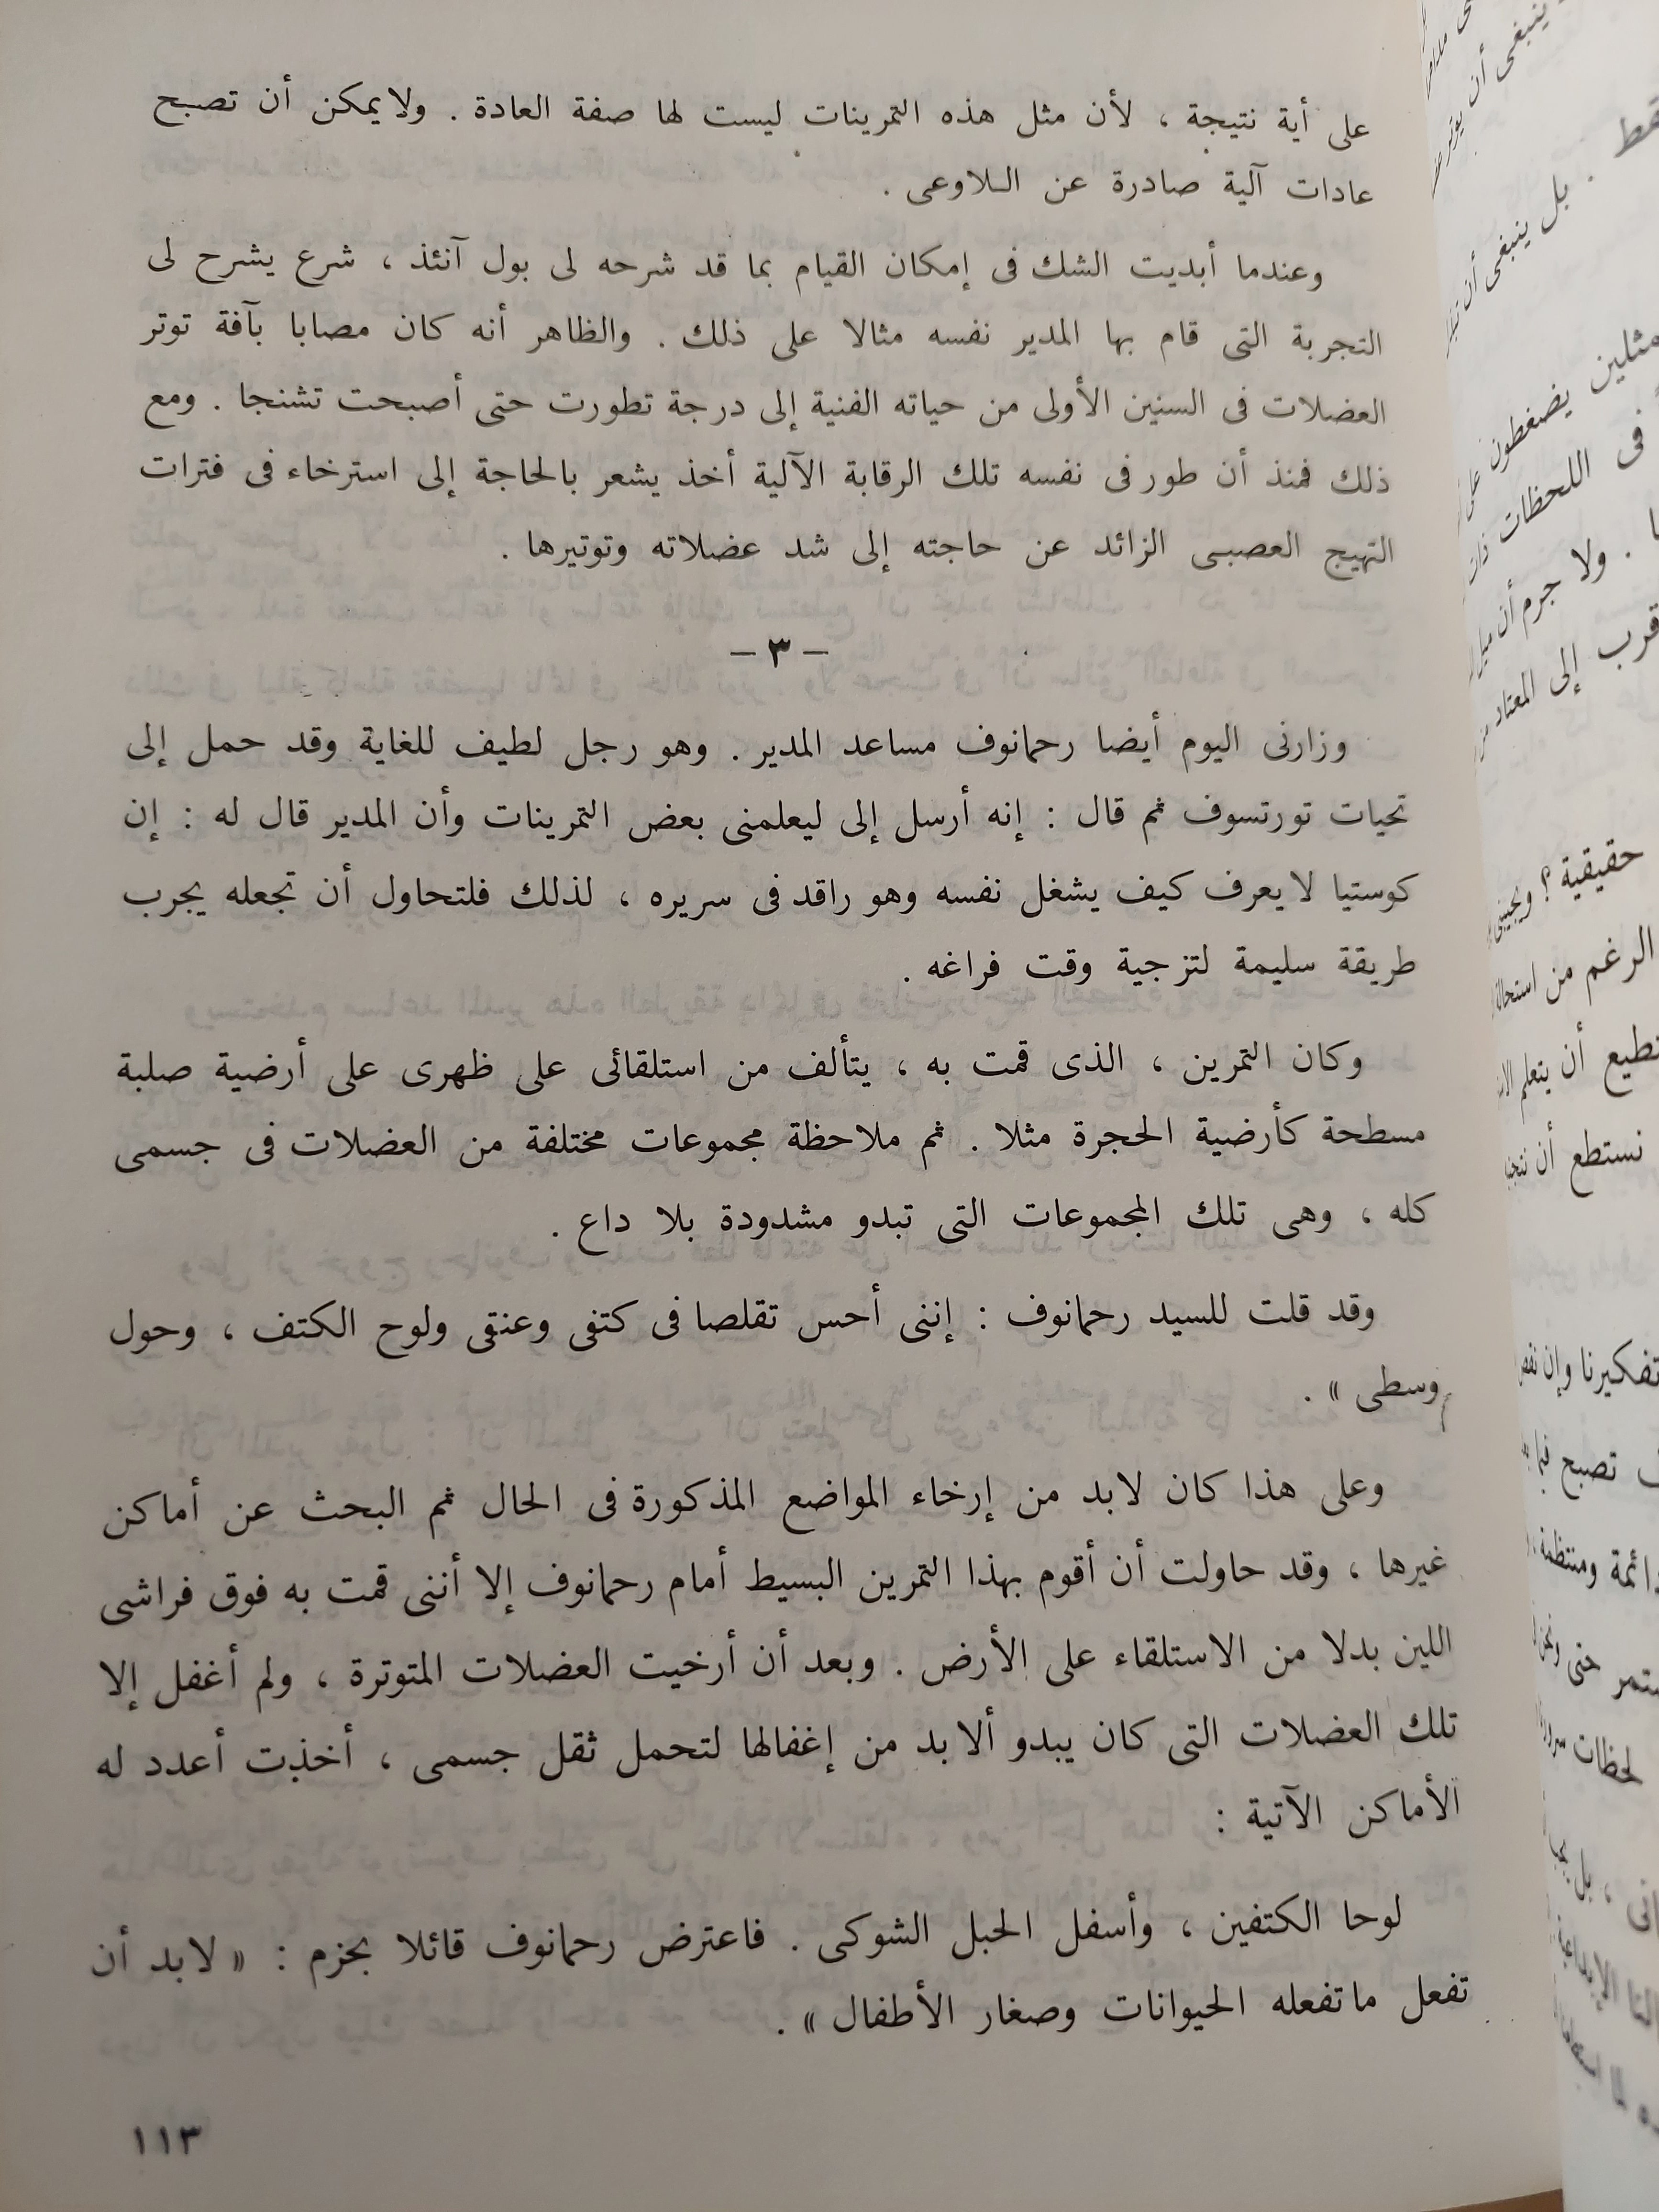 على أية نتيجة ، لأن مثل هذه التمرينات ليست لها صفة العادة . ولايمكن أن تصبح
عادات آلية صادرة عن اللاوعى .
وعندما أبديت الشك فى إمكان القيام بما قد شرحه لى بول آنئذ ، شرع يشرح لى
التجربة التى قام بها المدير نفسه مثالا على ذلك . والظاهر أنه كان مصابا بآفة توتر
العضلات فى السنين الأولى من حياته الفنية إلى درجة تطورت حتى أصبحت تشنجا . ومع
ذلك فمنذ أن طور فى نفسه تلك الرقابة الآلية أخذ يشعر بالحاجة إلى استرخاء فى فترات
التهيج العصبى الزائد عن حاجته إلى شد عضلاته وتوتيرها .
– ٣ –
وزارنى اليوم أيضا رحمانوف مساعد المدير . وهو رجل لطيف للغاية وقد حمل إلى
تحيات تورتسوف ثم قال : إنه أرسل إلى ليعلمنى بعض التمرينات وأن المدير قال له : إن
كوستيا لايعرف كيف يشغل نفسه وهو راقد فى سريره ، لذلك فلتحاول أن تجعله يجرب
طريقة سليمة لتزجية وقت فراغه .
وكان التمرين ، الذى قمت به ، يتألف من استلقائى على ظهرى على أرضية صلبة
مسطحة كأرضية الحجرة مثلا . ثم ملاحظة مجموعات مختلفة من العضلات فى جسمى
كله ، وهى تلك المجموعات التى تبدو مشدودة بلا داع .
وقد قلت للسيد رحمانوف : إننى أحس تقلصا فى كتفى وعنقى ولوح الكتف ، وحول
وسطى » .
وعلى هذا كان لابد من إرخاء المواضع المذكورة فى الحال ثم البحث عن أماكن
غيرها ، وقد حاولت أن أقوم بهذا التمرين البسيط أمام رحمانوف إلا أننى قمت به فوق فراشى
اللين بدلا من الاستلقاء على الأرض . وبعد أن أرخيت العضلات المتوترة ، ولم أغفل إلا
تلك العضلات التى كان يبدو ألابد من إغفالها لتحمل ثقل جسمى ، أخذت أعدد له
الأماكن الآتية :
لوحا الكتفين ، وأسفل الحبل الشوكى . فاعترض رحمانوف قائلا بحزم : « لابد أن
تفعل ماتفعله الحيوانات وصغار الأطفال » .
١١٣